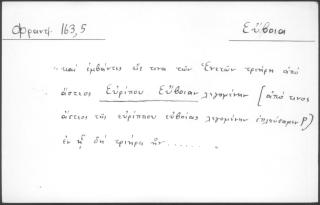 Φραντ. 163,5 Εὔβοια
"καὶ ἐμβάντες ὥς τινα τῶν Ἐνετῶν τριήρη ἀπὸ
ἄστεος Εὐρίπου Εὔβοιαν λεγομένην (ἀπό τινος
ἄστεος τῆς εὐρίππου εὐβοίας λεγομένην ἐπλεύσαμεν P)
ἐν ᾗ δὴ τριήρει ἦν......."